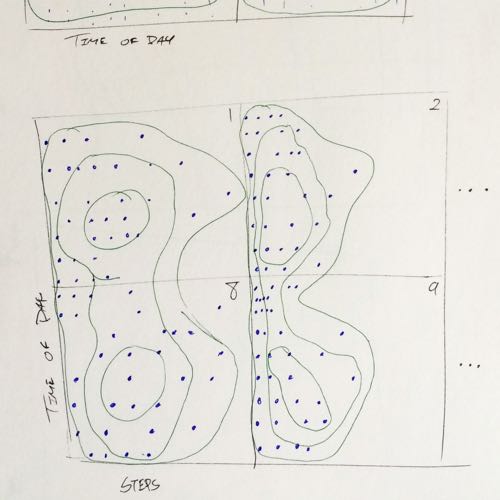 TIME OF DAY
1
2
8
9
TIME OF DAY
STEPS